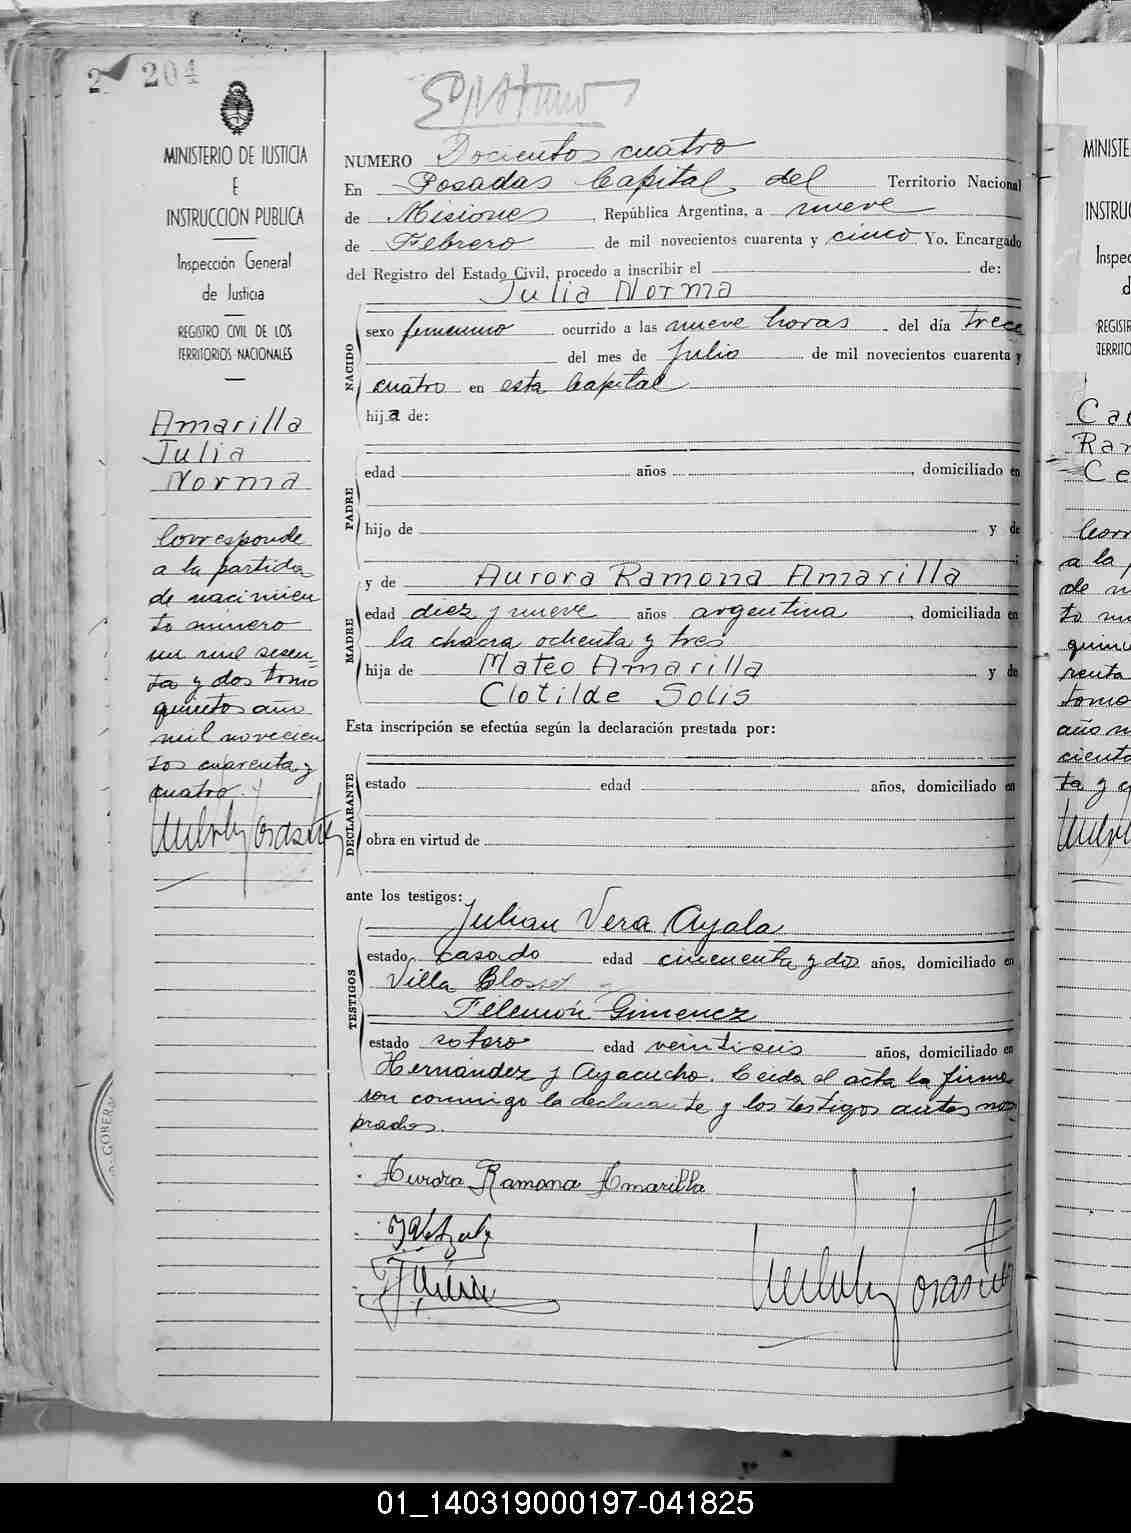 2 204
MINISTERIO DE JUSTICIA
E
INSTRUCCION PUBLICA
Inspección General
de Justicia
REGISTRO CIVIL DE LOS
TERRITORIOS NACIONALES
Amarilla
Julia
Norma
Corresponde
a la partida
de nacimien
to número
un mil sesen-
ta y dos tomo
quintos año
mil novecien
tos cuarenta y
cuatro.
NUMERO Docientos cuatro
En Posadas Capital del Territorio Nacional
de Misiones, República Argentina, a nueve
de Febrero de mil novecientos cuarenta y cinco Yo. Encargado
del Registro del Estado Civil, procedo a inscribir el de:
Julia Norma
NACIDO
sexo femenino ocurrido a las nueve horas del día trece
del mes de Julio de mil novecientos cuarenta y
cuatro en esta Capital
hija de:
PADRE
edad años , domiciliado en
hijo de y de
MADRE
y de Aurora Ramona Amarilla
edad diez y nueve años argentina , domiciliada en
la chacra ochenta y tres
hija de Mateo Amarilla y de
Clotilde Solis
Esta inscripción se efectúa según la declaración prestada por:
DECLARANTE
estado edad años, domiciliado en
obra en virtud de
ante los testigos:
TESTIGOS
Julian Vera Ayala
estado casado edad cincuenta y dos años, domiciliado en
Villa Blosset
Filemón Gimenez
estado soltero edad veintiseis años, domiciliado en
Hernández y Ayacucho. Leida el acta la firma
ron conmigo la declarante y los testigos antes nom
prados.
Aurora Ramona Amarilla
MINISTE
INSTRUC
Inspec
d
REGIST
TERRITO
Ram
Ce
Corr
a la p
de n
to nu
quin
renta
tomo
año m
ciento
ta y c
GOBERN
01_140319000197-041825